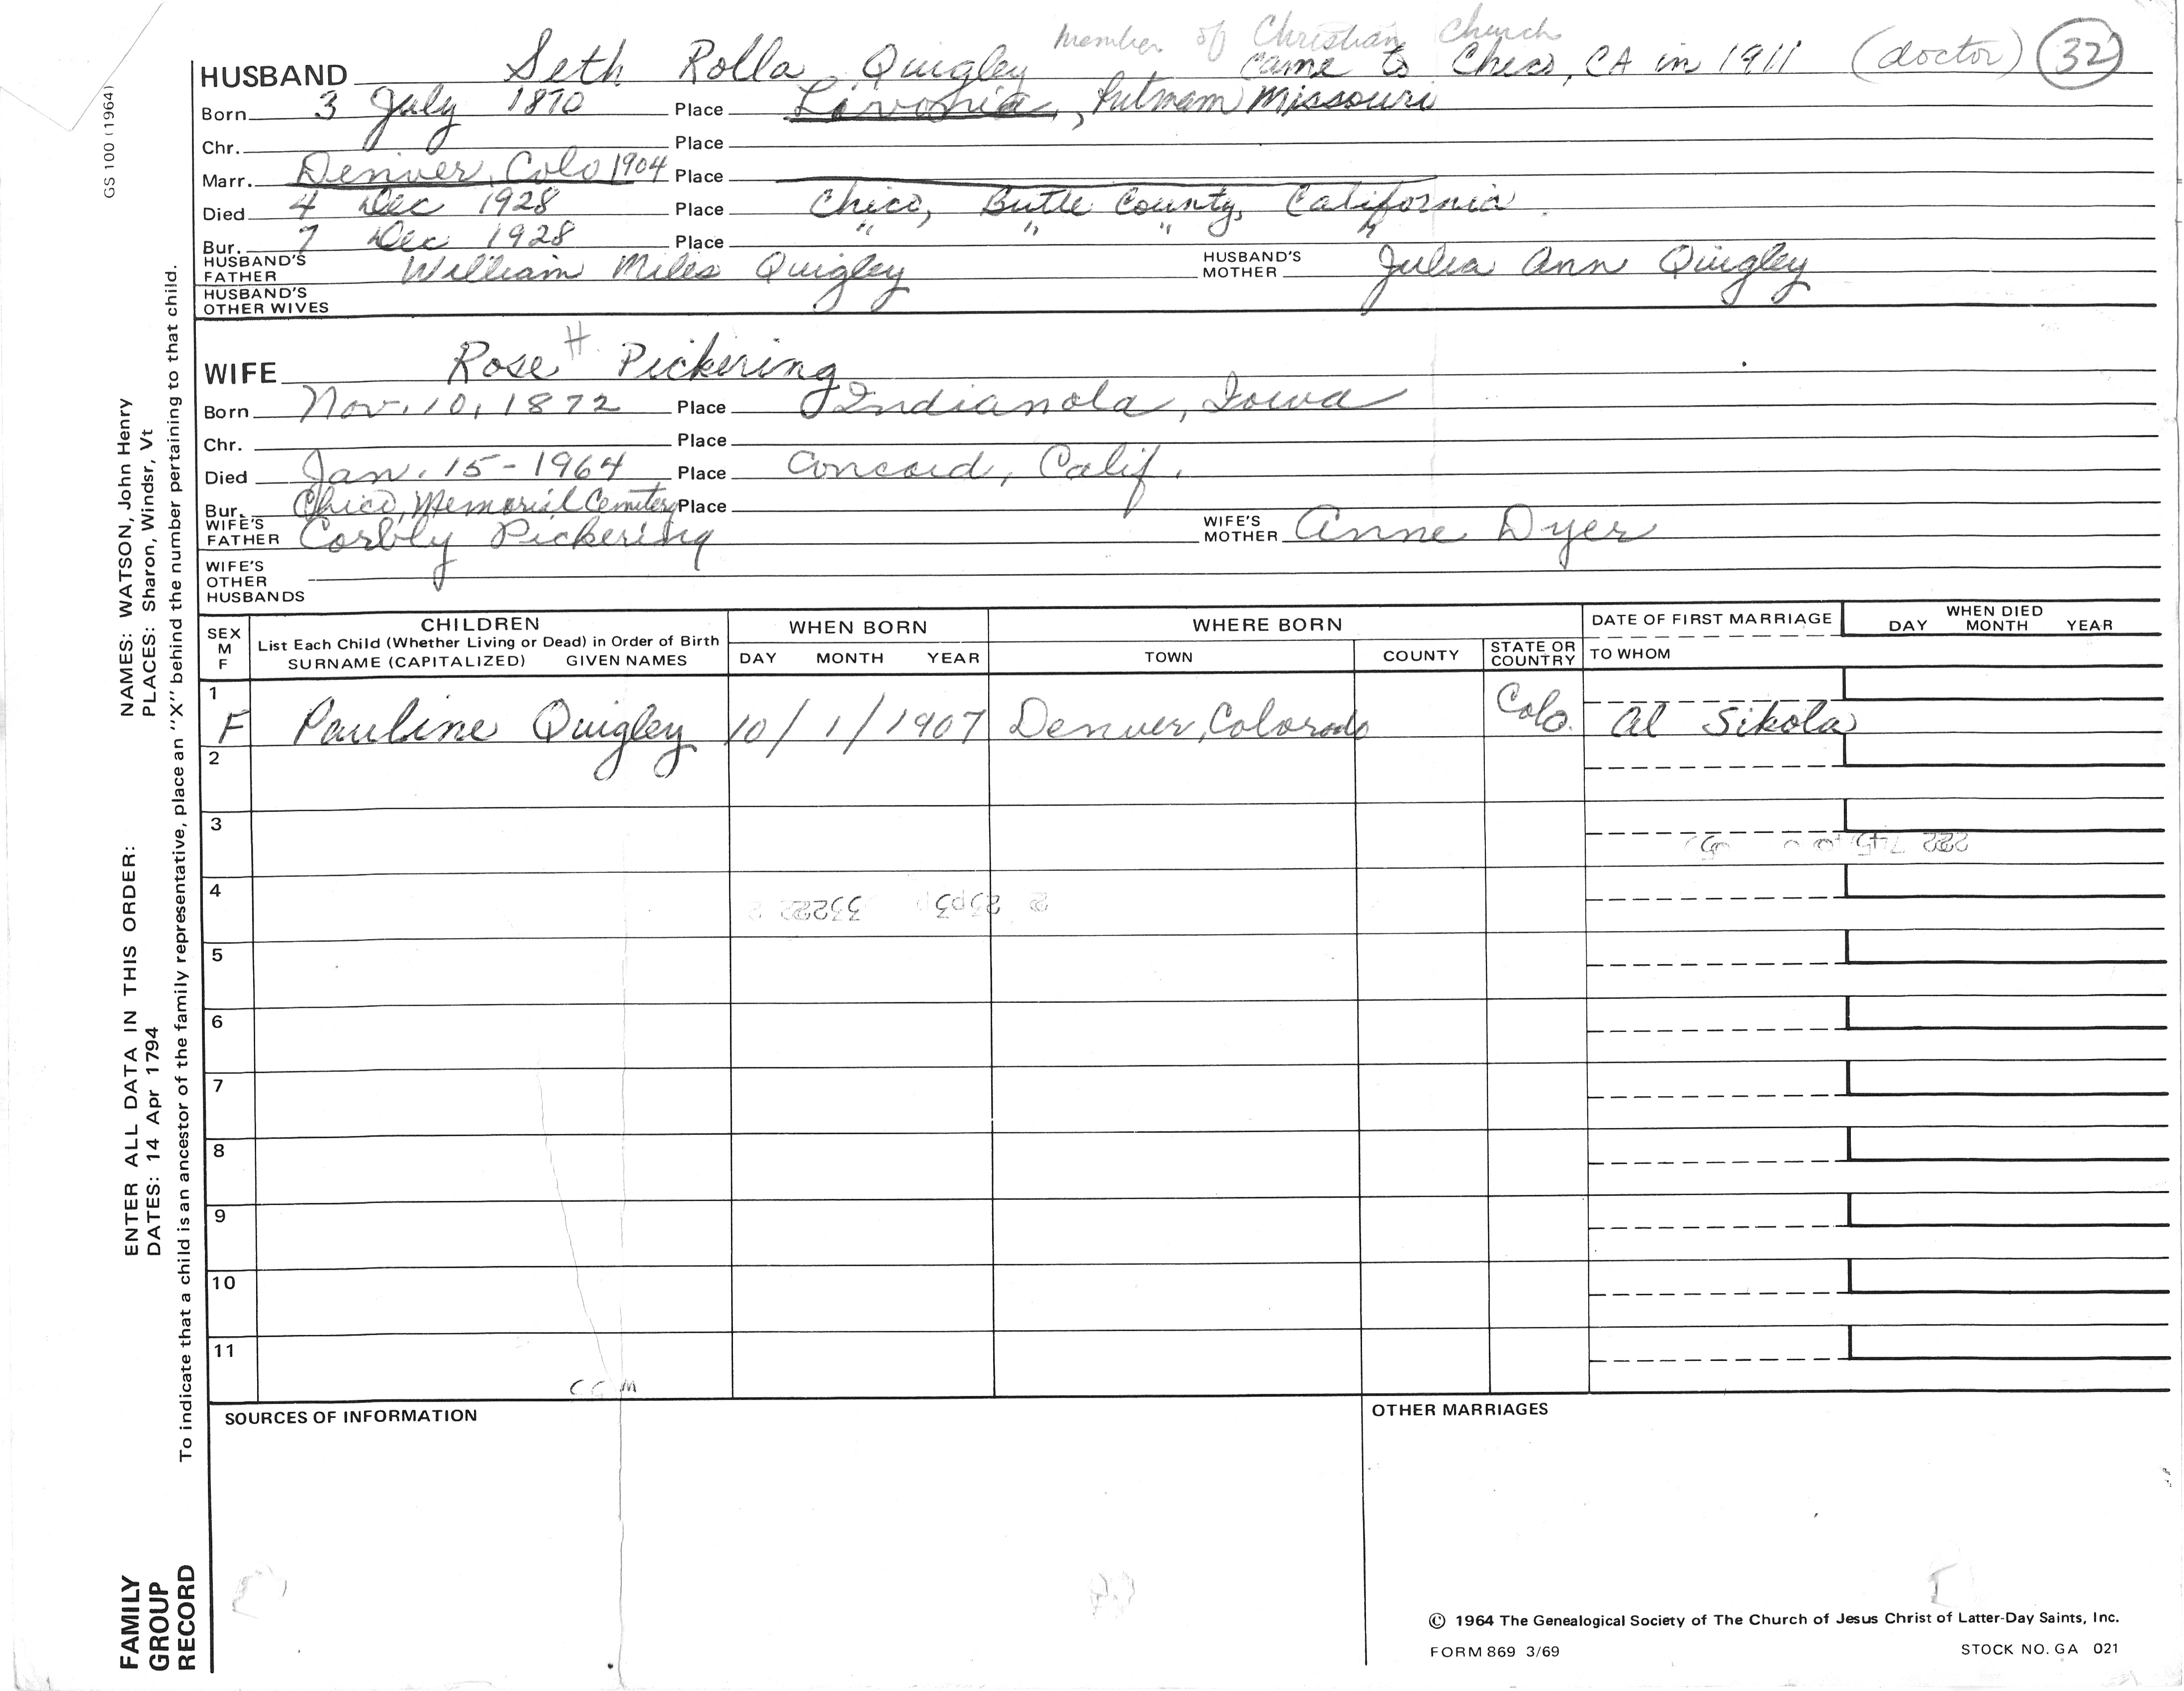 member of Christian Church
HUSBAND Seth Rolla Quigley came to Chico, CA in 1911 (doctor) 32
Born 3 July 1870 Place Livonia, Putnam Missouri
Chr. Place
Marr. Denver, Colo 1904 Place
Died 4 Dec 1928 Place Chico, Butte County, California
Bur. 7 Dec 1928 Place " " " "
HUSBAND'S FATHER William Miles Quigley HUSBAND'S MOTHER Julia Ann Quigley
HUSBAND'S OTHER WIVES
WIFE Rose H. Pickering
Born Nov. 10, 1872 Place Indianola, Iowa
Chr. Place
Died Jan. 15-1964 Place Concord, Calif.
Bur. Chico, Memorial Cemetery Place
WIFE'S FATHER Corbly Pickering WIFE'S MOTHER Anne Dyer
WIFE'S OTHER HUSBANDS
SEX M F
CHILDREN
List Each Child (Whether Living or Dead) in Order of Birth
SURNAME (CAPITALIZED) GIVEN NAMES
WHEN BORN
DAY MONTH YEAR
WHERE BORN
TOWN COUNTY STATE OR COUNTRY
DATE OF FIRST MARRIAGE
TO WHOM
WHEN DIED
DAY MONTH YEAR
1 F Pauline Quigley 10/1/1907 Denver, Colorado Colo. Al Sikola
2
3
4
5
6
7
8
9
10
11
SOURCES OF INFORMATION
OTHER MARRIAGES
© 1964 The Genealogical Society of The Church of Jesus Christ of Latter-Day Saints, Inc.
FORM 869 3/69 STOCK NO. GA 021
GS 100 (1964)
ENTER ALL DATA IN THIS ORDER:
DATES: 14 Apr 1794
NAMES: WATSON, John Henry
PLACES: Sharon, Windsr, Vt
To indicate that a child is an ancestor of the family representative, place an "X" behind the number pertaining to that child.
FAMILY
GROUP
RECORD